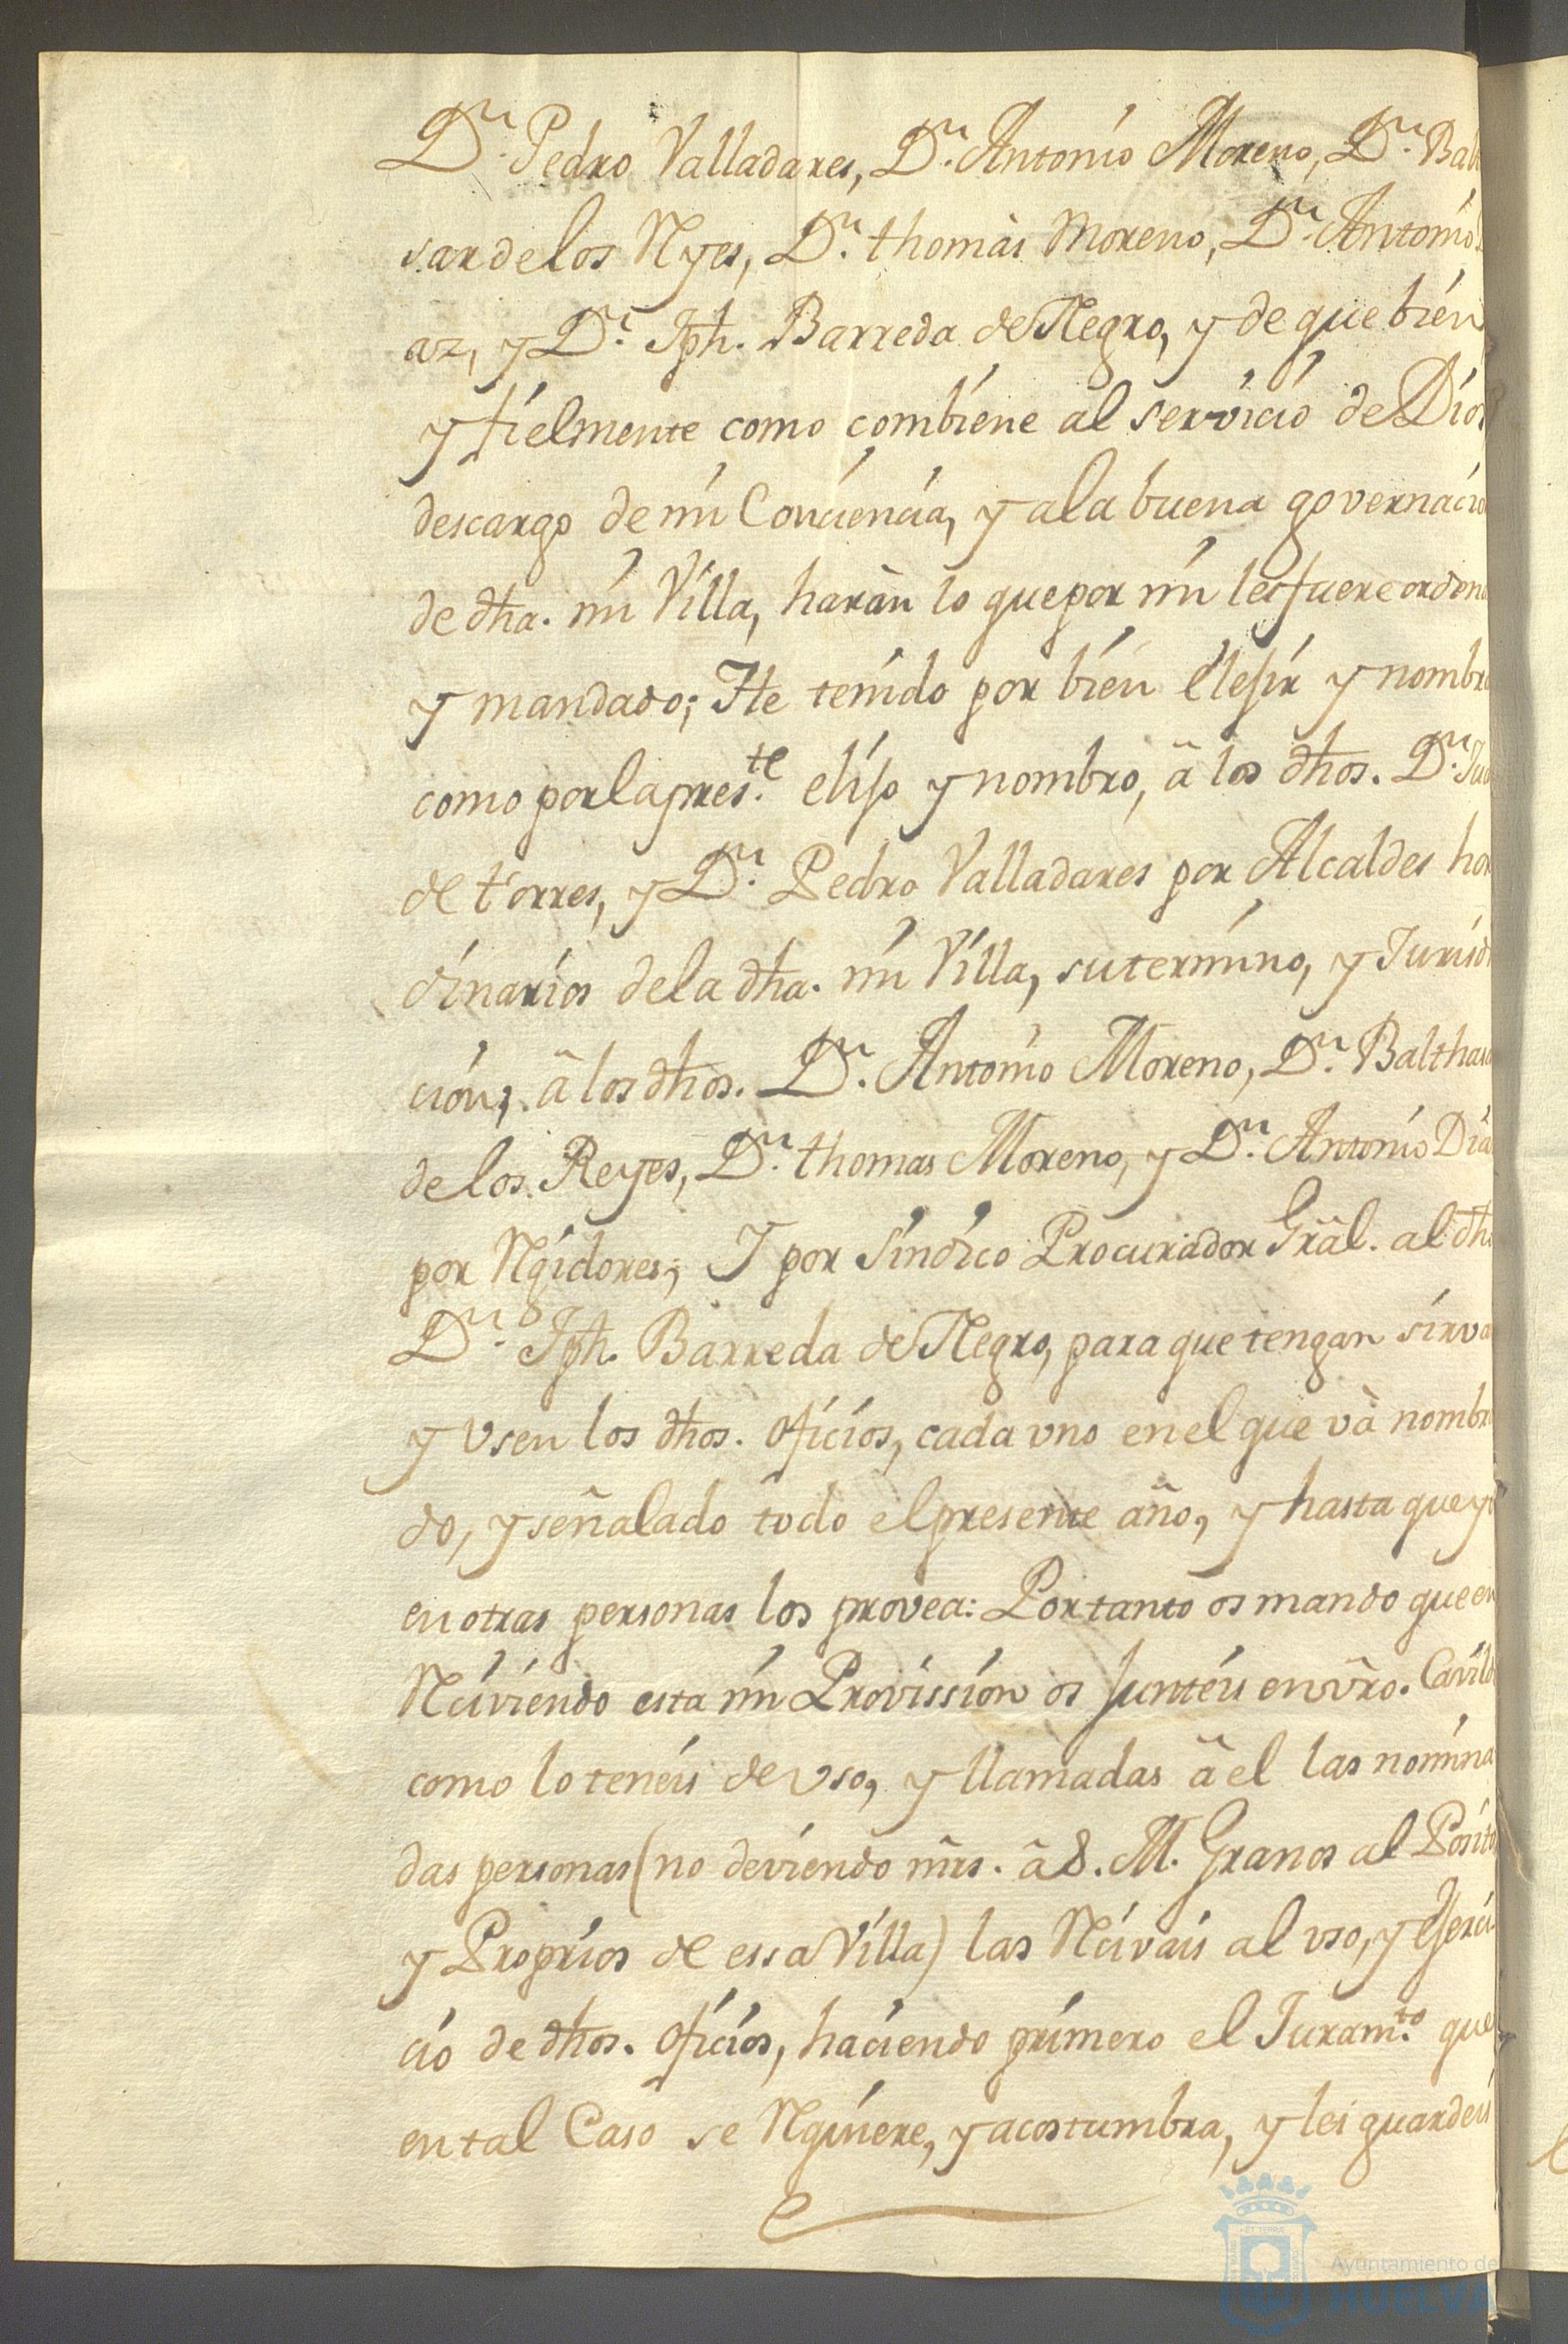 Dn. Pedro Valladares, Dn. Antonio Moreno, Dn. Bal
sar de los Ryes, Dn. thomàs Moreno, Dn. Antonio
az, y Dn. Jph. Barreda de Negro, y de que bien
y fielmente como combiene al servicio de Dios
descargo de mi Conciencia, y ala buena governacio
de dha. mi Villa, haràn lo que por mi les fuere ordena
y mandado; He tenido por bien elejir y nombra
como por la preste. elijo y nombro, â los dhos. Dn. Jua
de torres, y Dn. Pedro Valladares por Alcaldes hor
dinarios dela dha. mi Villa, su termino, y Jurisdi
cion; â los dhos. Dn. Antonio Moreno, Dn. Balthasa
de los Reyes, Dn. thomas Moreno, y Dn. Antonio Dia
por Rgidores; Y por Sindico Procurador Grâl. al dho
Dn. Jph. Barreda de Negro, para que tengan sirva
y Vsen los dhos. oficios, cada vno en el que và nombra
do, y señalado todo el presente año, y hasta que yo
en otras personas los provea: Por tanto os mando que en
Rciviendo esta mi Provission os junteis en vrô. Cavildo
como lo teneis de vso, y llamadas â el las nomina
das personas (no deviendo mrs. â S. M. Granos al Posito
y Proprios de essa Villa) las Rcivais al vso, y Ejerci
cio de dhos. oficios, haciendo primero el Juramto. que
en tal Caso se Rquiere, y acostumbra, y les guardeis
Ayuntamiento de
HUELVA